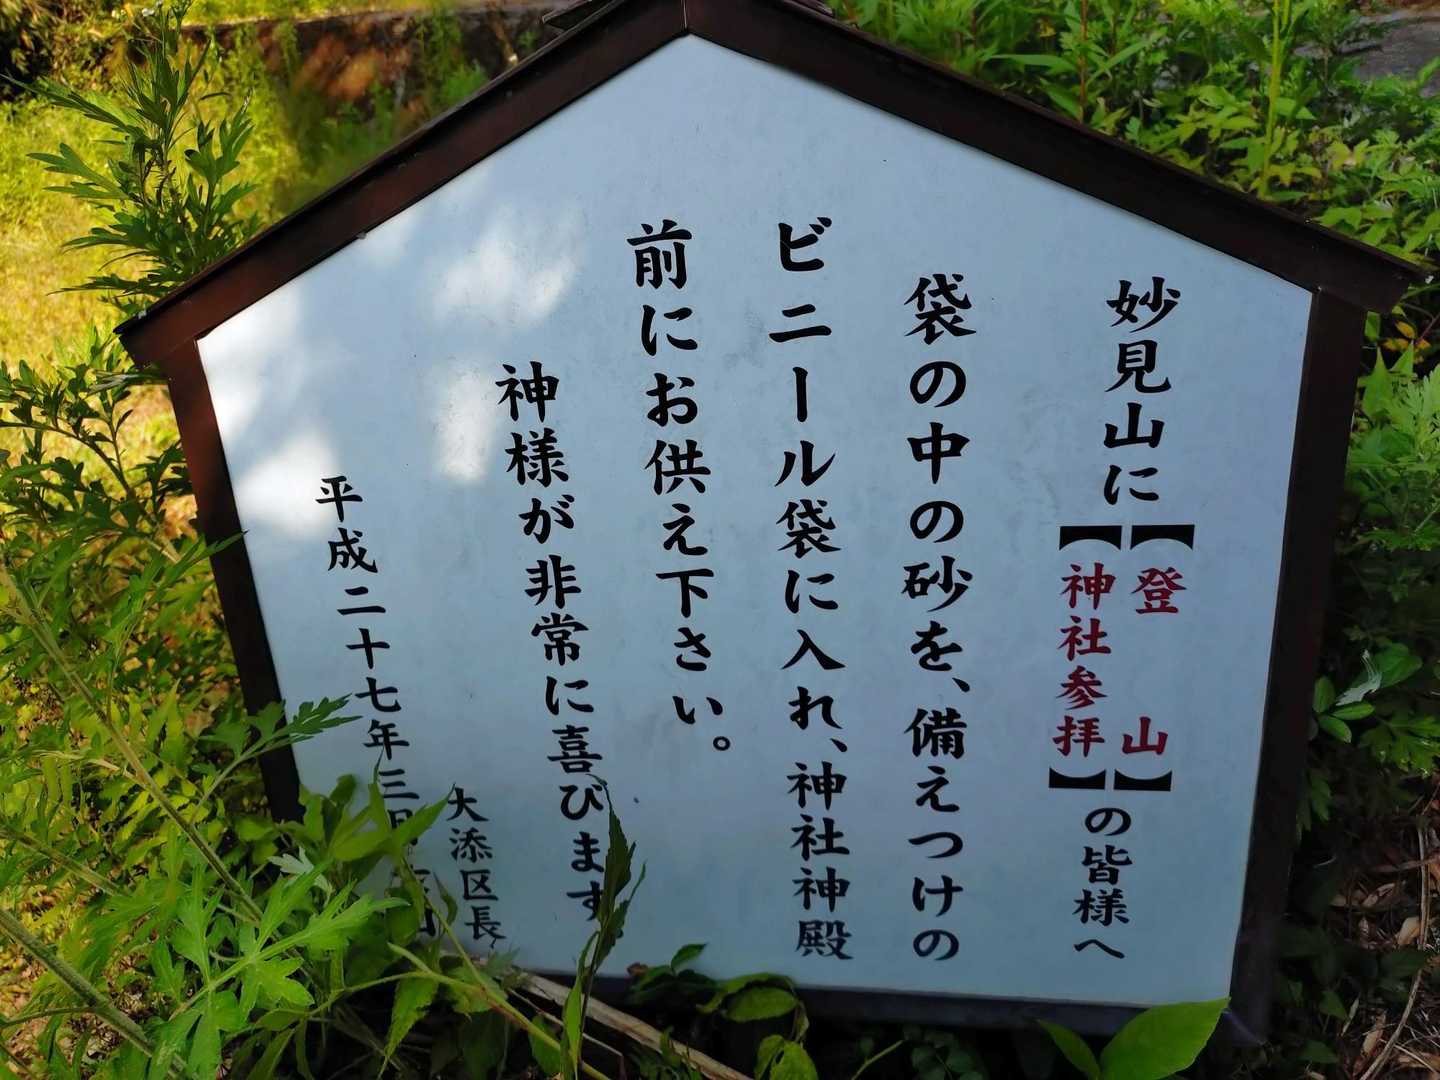 妙見山に【登山】【神社参拝】の皆様へ
袋の中の砂を、備えつけの
ビニール袋に入れ、神社神殿
前にお供え下さい。
神様が非常に喜びます
大添区長
平成二十七年三月